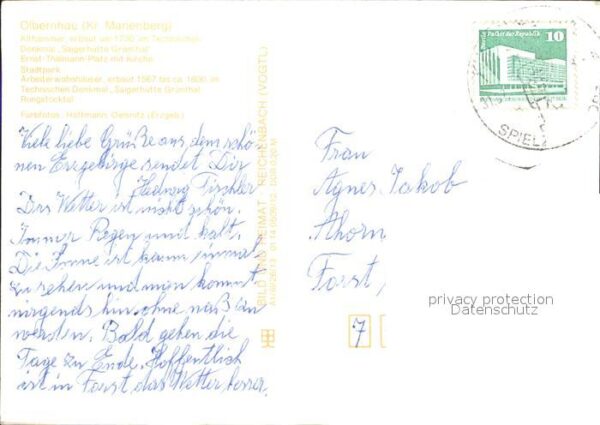 Olbernhau (Kr. Marienberg)
Althammer, erbaut um 1730 im Technischen
Denkmal „Saigerhütte Grünthal"
Ernst-Thälmann-Platz mit Kirche
Stadtpark
Arbeiterwohnhäuser, erbaut 1567 bis ca. 1600 im
Technischen Denkmal „Saigerhütte Grünthal"
Rungstocktal
Farbfotos: Hoffmann, Oelsnitz (Erzgeb.)
Viele liebe Grüße aus dem schö-
nen Erzgebirge sendet Dir
Hedwig Tischler
Das Wetter ist nicht schön.
Immer Regen und kalt.
Die Sonne ist kaum einmal
zu sehen und man kommt
nirgends hin ohne naß zu
werden. Bald gehen die
Tage zu Ende. Hoffentlich
ist in Forst das Wetter besser.
BILD UND HEIMAT REICHENBACH (VOGTL)
DDR 0,20 M
Berlin Palast der Republik
10
DDR
SPIELZ
Frau
Agnes Jakob
Ahorn
Forst,
7
privacy protection
Datenschutz